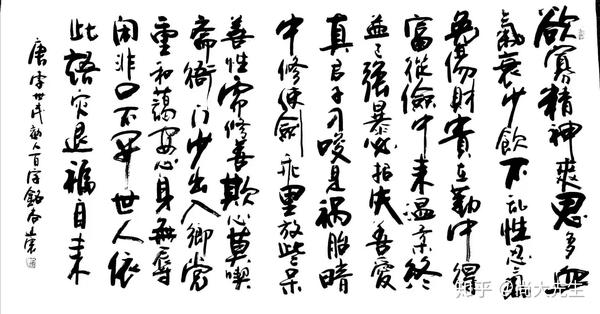 欲寡精神爽思多血
氣衰少飲不亂性忍氣
免傷財貴在勤中得
富從儉中来温柔終
益己强暴必招灾善
真君子刁唆是祸胎暗
中修使劍乖里放些呆
養性需修善欺心莫喫
斋衙门少出入鄉党
重和藹安心身無辱
闲非口不开世人依
此語灾退福自来
唐李世民 人百字銘
知乎 @尚大先生